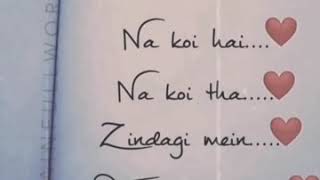 Na koi hai....❤️
Na koi tha.....❤️
Zindagi mein.....❤️